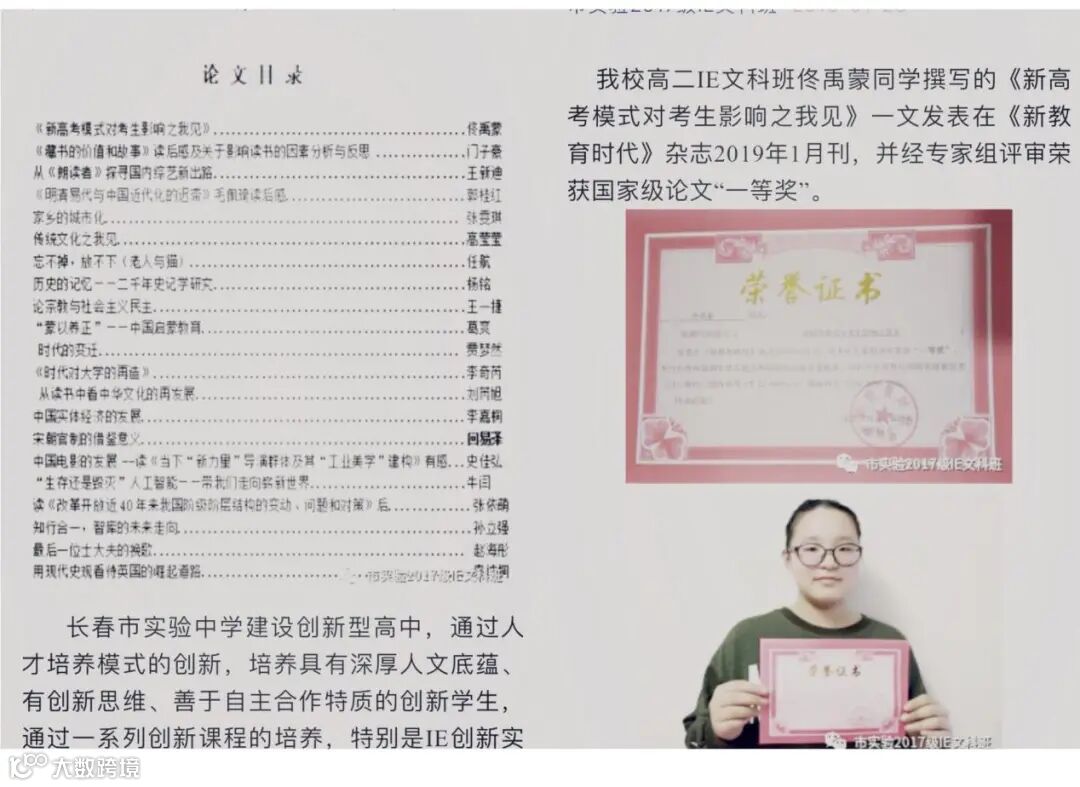 论文目录
《新高考模式对考生影响之我见》........佟禹蒙
《藏书的价值和故事》读后感及关于影响读书的因素分析与反思........门子豪
从《朗读者》探寻国内综艺新出路........王新迪
《明清易代与中国近代化的迟滞》毛佩琦读后感........郭桂红
家乡的城市化........张雯琪
传统文化之我见........高莹莹
忘不掉，放不下（老人与猫）........任航
历史的记忆——二千年史记学研究........杨铭
论宗教与社会主义民主........王一捷
“蒙以养正”——中国启蒙教育........葛爽
时代的变迁........费梦然
《时代对大学的再造》........李奇芮
从读书中看中华文化的再发展........刘芮旭
中国实体经济的发展........李嘉桐
宋朝官制的借鉴意义........闫易泽
中国电影的发展--读《当下“新力量”导演群体及其“工业美学”建构》有感...史佳弘
“生存还是毁灭”人工智能——带我们走向崭新世界........牛闫
读《改革开放近40年来我国阶级阶层结构的变动、问题和对策》后........张依萌
知行合一，智库的未来走向........孙立强
最后一位士大夫的挽歌........赵海彤
用现代史观看待英国的崛起道路........
市实验2017级IE文科班
长春市实验中学建设创新型高中，通过人
才培养模式的创新，培养具有深厚人文底蕴、
有创新思维、善于自主合作特质的创新学生，
通过一系列创新课程的培养，特别是IE创新实
市实验2017级IE文科班
我校高二IE文科班佟禹蒙同学撰写的《新高
考模式对考生影响之我见》一文发表在《新教
育时代》杂志2019年1月刊，并经专家组评审荣
获国家级论文“一等奖”。
荣誉证书
市实验2017级IE文科班
荣誉证书
市实验2017级IE文科班
大数跨境